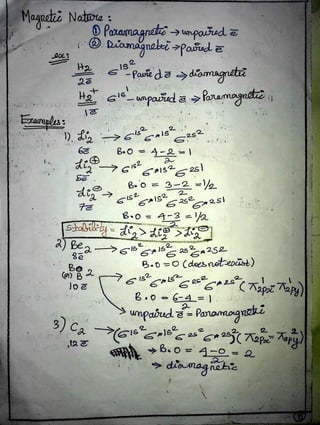 Magnetic Nature :
① Paramagnetic → unpaired e̅
② Diamagnetic → paired e̅
ex:
H2 σ1s2 - Paired e̅ → diamagnetic
2e̅
H2+ σ1s1 - unpaired e̅ → Paramagnetic
1e̅
Examples:
1) Li2 → σ1s2 σ*1s2 σ2s2
6e̅ B.O = 4-2/2 = 1
Li2⊕ → σ1s2 σ*1s2 σ2s1
5e̅ B.O = 3-2/2 = 1/2
Li2⊖ → σ1s2 σ*1s2 σ2s2 σ*2s1
7e̅
B.O = 4-3/2 = 1/2
Stability = Li2 > Li2⊕ > Li2⊖
2) Be2 → σ1s2 σ*1s2 σ2s2 σ*2s2
8e̅ B.O = 0 (does not exist)
(or) B2 → σ1s2 σ*1s2 σ2s2 σ*2s2 (π2px1 π2py1)
10e̅
B.O = 6-4/2 = 1
unpaired e̅ = Paramagnetic
3) C2 → (σ1s2 σ*1s2 σ2s2 σ*2s2)(π2px2 π2py2)
12e̅
→ B.O = 4-0/2 = 2
→ diamagnetic